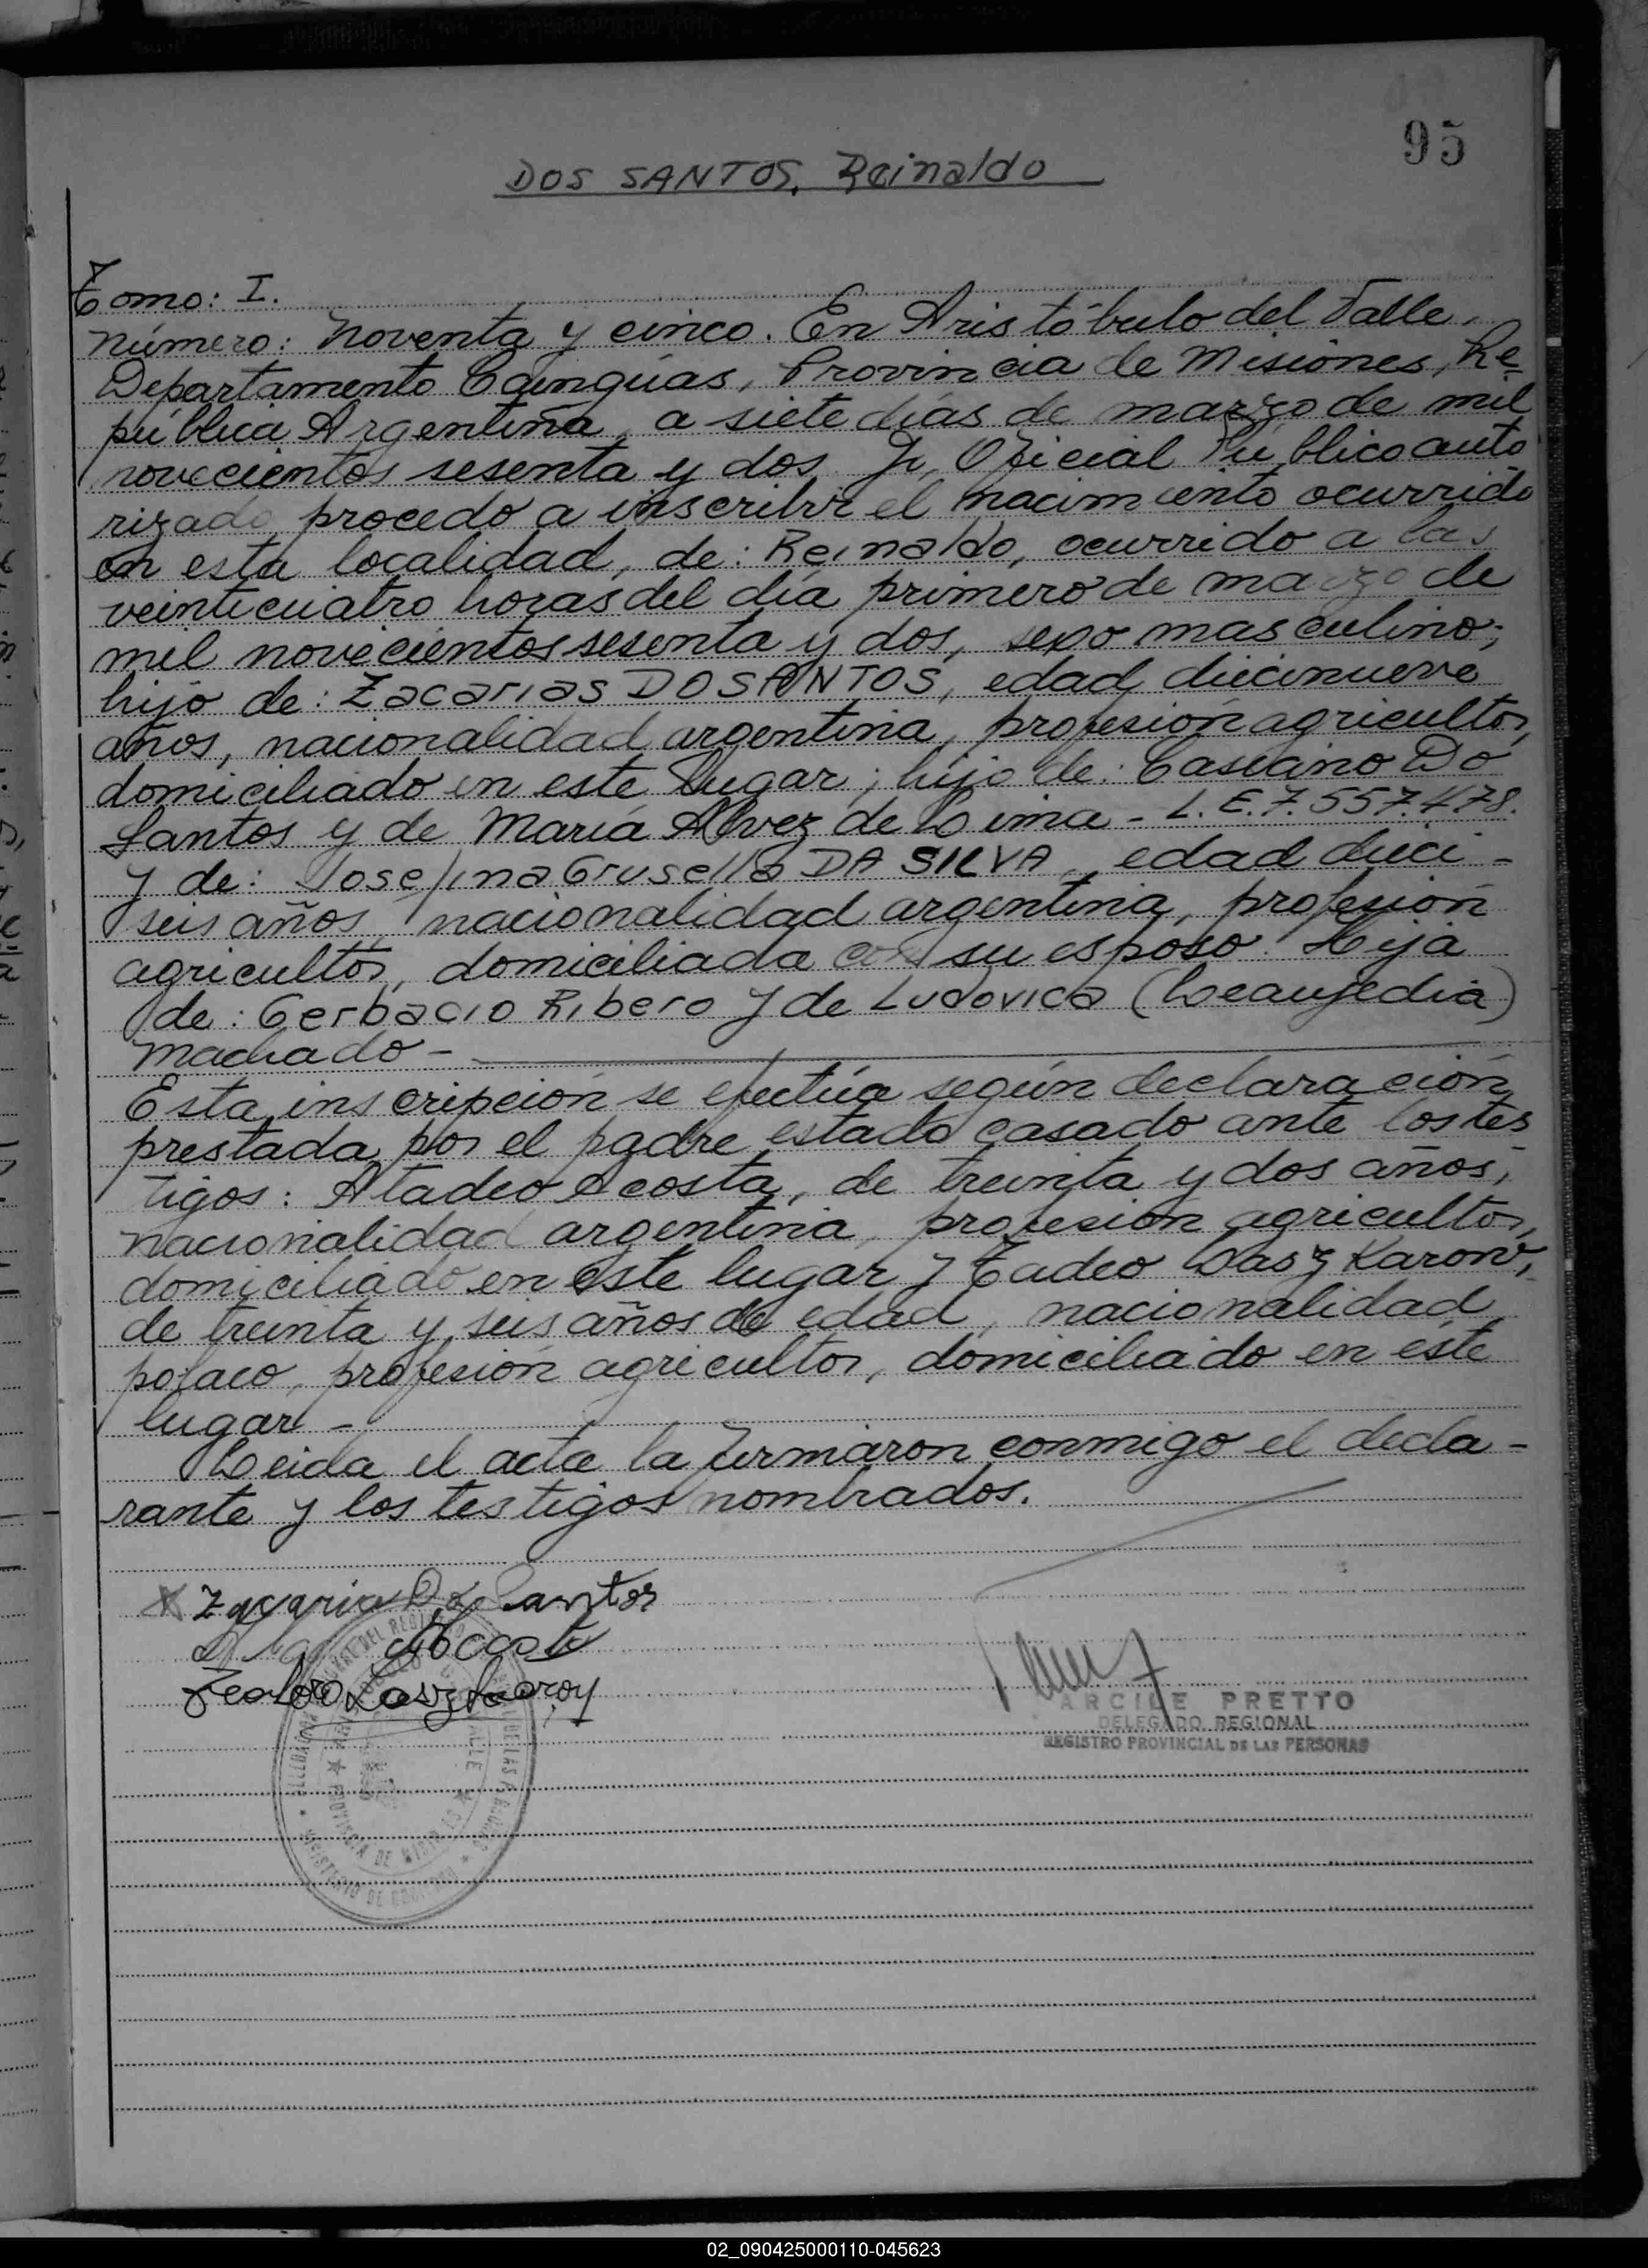 95
DOS SANTOS, Reinaldo
Tomo: I.
Número: Noventa y cinco. En Aristóbulo del Valle,
Departamento Cainguás, Provincia de Misiones, Re-
pública Argentina, a siete días de marzo de mil
novecientos sesenta y dos Yo, Oficial Público auto
rizado procedo a inscribir el nacimiento ocurrido
en esta localidad, de: Reinaldo, ocurrido a las
veinticuatro horas del día primero de marzo de
mil novecientos sesenta y dos, sexo masculino;
hijo de: Zacarias DOSANTOS, edad diecinueve
años, nacionalidad argentina, profesión agricultor,
domiciliado en este lugar; hijo de: Casiano Do
Santos y de María Alvez de Lima - L.E. 7.557.478.
y de: Josefina Grusella DA SILVA, edad dieci-
seis años, nacionalidad argentina, profesión
agricultor, domiciliada con su esposo. Hija
de: Gerbacio Ribero y de Ludovica (Leaugedia)
Machado -
Esta inscripción se efectúa según declaración
prestada por el padre estado casado ante los tes
tigos: Atadeo Acosta, de treinta y dos años,
nacionalidad argentina, profesión agricultor,
domiciliado en este lugar y Tadeo Laszkarow,
de treinta y seis años de edad, nacionalidad
polaco, profesión agricultor, domiciliado en este
lugar -
Leida el acta la firmaron conmigo el decla-
rante y los testigos nombrados.
X Zacaria Do Santos
ARCILE PRETTO
DELEGADO REGIONAL
REGISTRO PROVINCIAL DE LAS PERSONAS
PROVINCIA DE MISIONES
MINISTERIO DE GOBIERNO
02_090425000110-045623